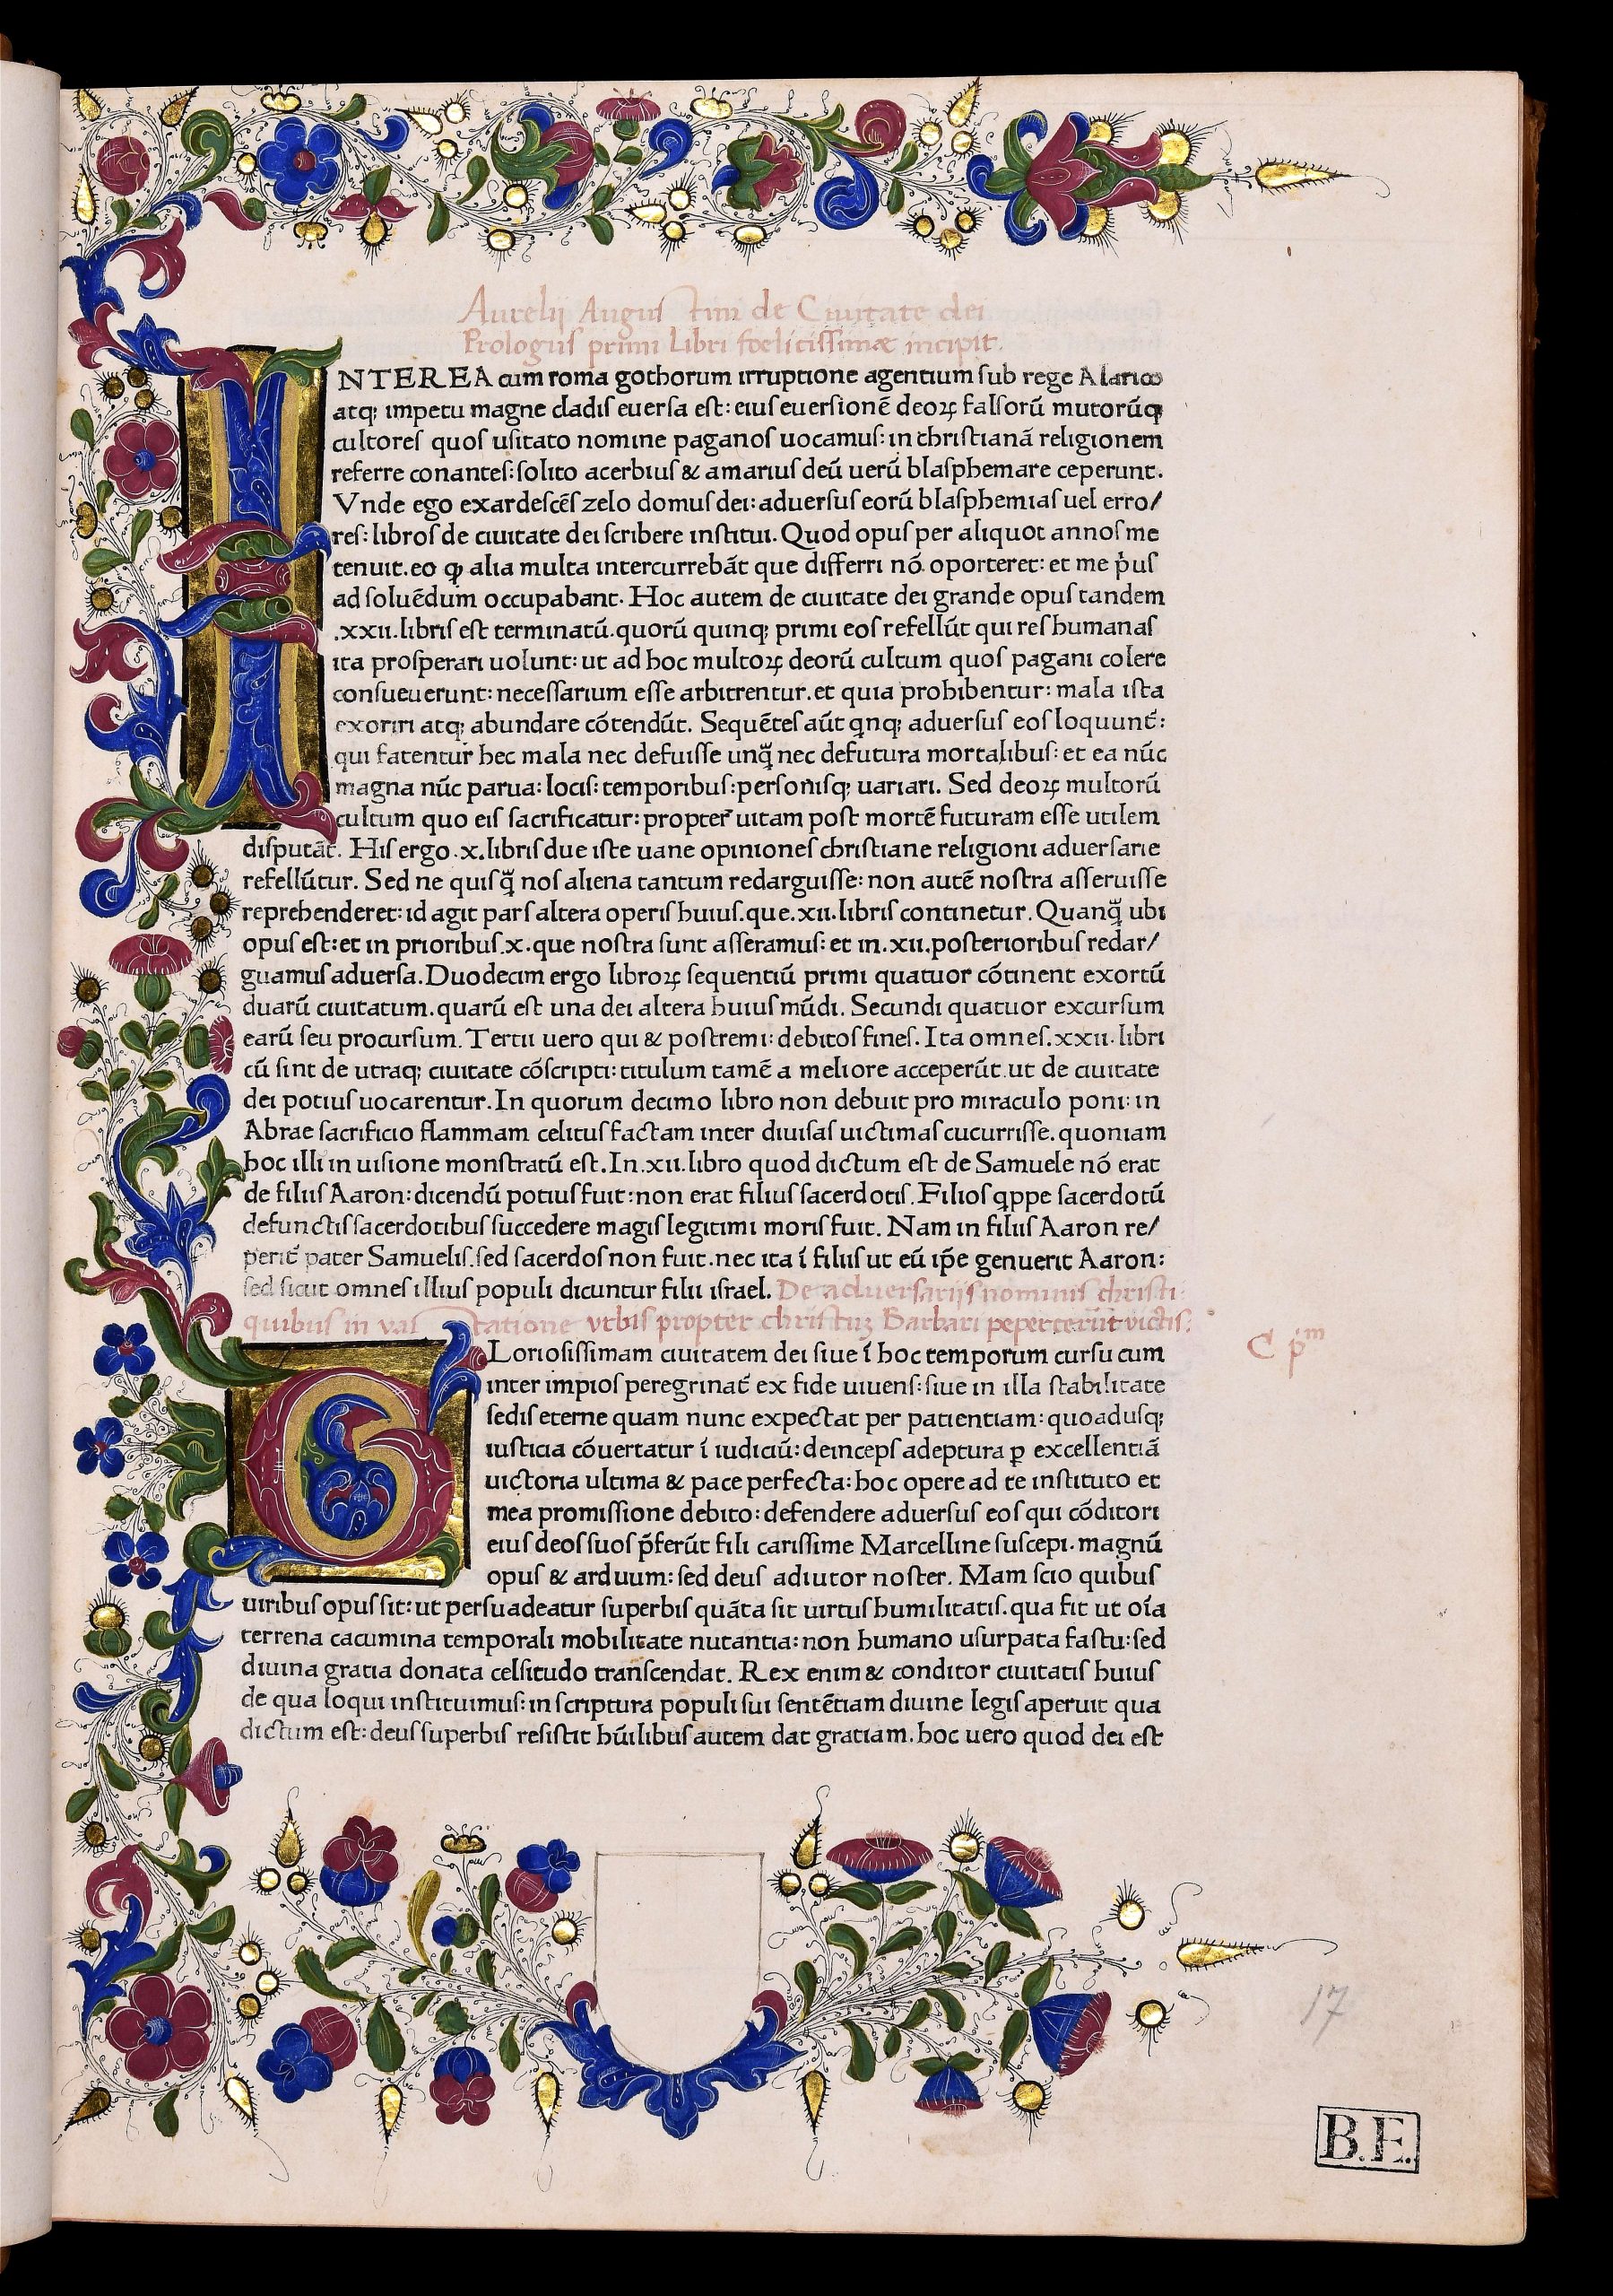 Aurelij Augustini de Ciuitate dei
Prologus primi Libri foelicissimæ incipit.
INTEREA cum roma gothorum irruptione agentium sub rege Alarico
atq; impetu magne cladis euersa est: eius euersionē deoꝝ falsorū mutorūq;
cultores quos usitato nomine paganos uocamus: in christianā religionem
referre conantes: solito acerbius & amarius deū uerū blasphemare ceperunt.
Vnde ego exardescēs zelo domus dei: aduersus eorū blasphemias uel erro/
res: libros de ciuitate dei scribere institui. Quod opus per aliquot annos me
tenuit. eo ꝙ alia multa intercurrebāt que differri nō oporteret: et me p̄us
ad soluēdum occupabant. Hoc autem de ciuitate dei grande opus tandem
.xxii. libris est terminatū. quorū quinq; primi eos refellūt qui res humanas
ita prosperari uolunt: ut ad hoc multoꝝ deorū cultum quos pagani colere
consueuerunt: necessarium esse arbitrentur. et quia prohibentur: mala ista
exoriri atq; abundare cōtendūt. Sequētes aūt qnq; aduersus eos loquunt̄:
qui fatentur hec mala nec defuisse unq̄ nec defutura mortalibus: et ea nūc
magna nūc parua: locis: temporibus: personisq; uariari. Sed deoꝝ multorū
cultum quo eis sacrificatur: propter uitam post mortē futuram esse utilem
disputāt. His ergo .x. libris due iste uane opiniones christiane religioni aduersarie
refellūtur. Sed ne quisq̄ nos aliena tantum redarguisse: non autē nostra asseruisse
reprehenderet: id agit pars altera operis huius. que .xii. libris continetur. Quanq̄ ubi
opus est: et in prioribus .x. que nostra sunt asseramus: et in .xii. posterioribus redar/
guamus aduersa. Duodecim ergo libroꝝ sequentiū primi quatuor cōtinent exortū
duarū ciuitatum. quarū est una dei altera huius mūdi. Secundi quatuor excursum
earū seu procursum. Tertii uero qui & postremi: debitos fines. Ita omnes .xxii. libri
cū sint de utraq; ciuitate cōscripti: titulum tamē a meliore acceperūt. ut de ciuitate
dei potius uocarentur. In quorum decimo libro non debuit pro miraculo poni: in
Abrae sacrificio flammam celitus factam inter diuisas uictimas cucurrisse. quoniam
hoc illi in uisione monstratū est. In .xii. libro quod dictum est de Samuele nō erat
de filiis Aaron: dicendū potius fuit: non erat filius sacerdotis. Filios qppe sacerdotū
defunctis sacerdotibus succedere magis legitimi moris fuit. Nam in filiis Aaron re/
perit̄ pater Samuelis. sed sacerdos non fuit. nec ita ī filiis ut eū ip̄e genuerit Aaron:
sed sicut omnes illius populi dicuntur filii israel. De aduersarijs nominis christi:
quibus in vastatione vrbis propter christuꝫ Barbari pepercerūt victis:
C pᵐ
GLoriosissimam ciuitatem dei siue ī hoc temporum cursu cum
inter impios peregrinat̄ ex fide uiuens: siue in illa stabilitate
sedis eterne quam nunc expectat per patientiam: quoadusq;
iusticia cōuertatur ī iudiciū: deinceps adeptura ꝑ excellentiā
uictoria ultima & pace perfecta: hoc opere ad te instituto et
mea promissione debito: defendere aduersus eos qui cōditori
eius deos suos p̄ferūt fili carissime Marcelline suscepi. magnū
opus & arduum: sed deus adiutor noster. Mam scio quibus
uiribus opus sit: ut persuadeatur superbis quāta sit uirtus humilitatis. qua fit ut oīa
terrena cacumina temporali mobilitate nutantia: non humano usurpata fastu: sed
diuina gratia donata celsitudo transcendat. Rex enim & conditor ciuitatis huius
de qua loqui instituimus: in scriptura populi sui sentētiam diuine legis aperuit qua
dictum est: deus superbis resistit hūilibus autem dat gratiam. hoc uero quod dei est
17
B.E.